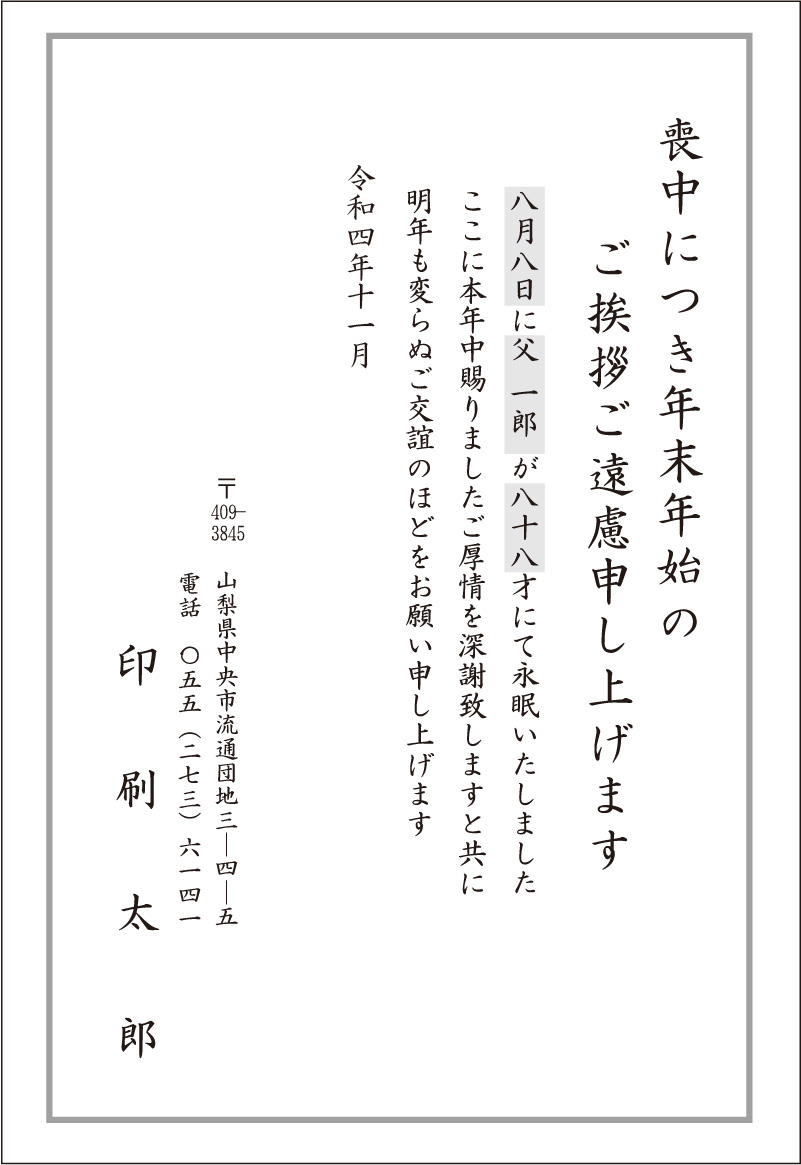 喪中につき年末年始の
ご挨拶ご遠慮申し上げます
八月八日に父 一郎 が八十八才にて永眠いたしました
ここに本年中賜りましたご厚情を深謝致しますと共に
明年も変らぬご交誼のほどをお願い申し上げます
令和四年十一月
〒409-3845 山梨県中央市流通団地三―四―五
電話 〇五五（二七三）六一四一
印刷太郎